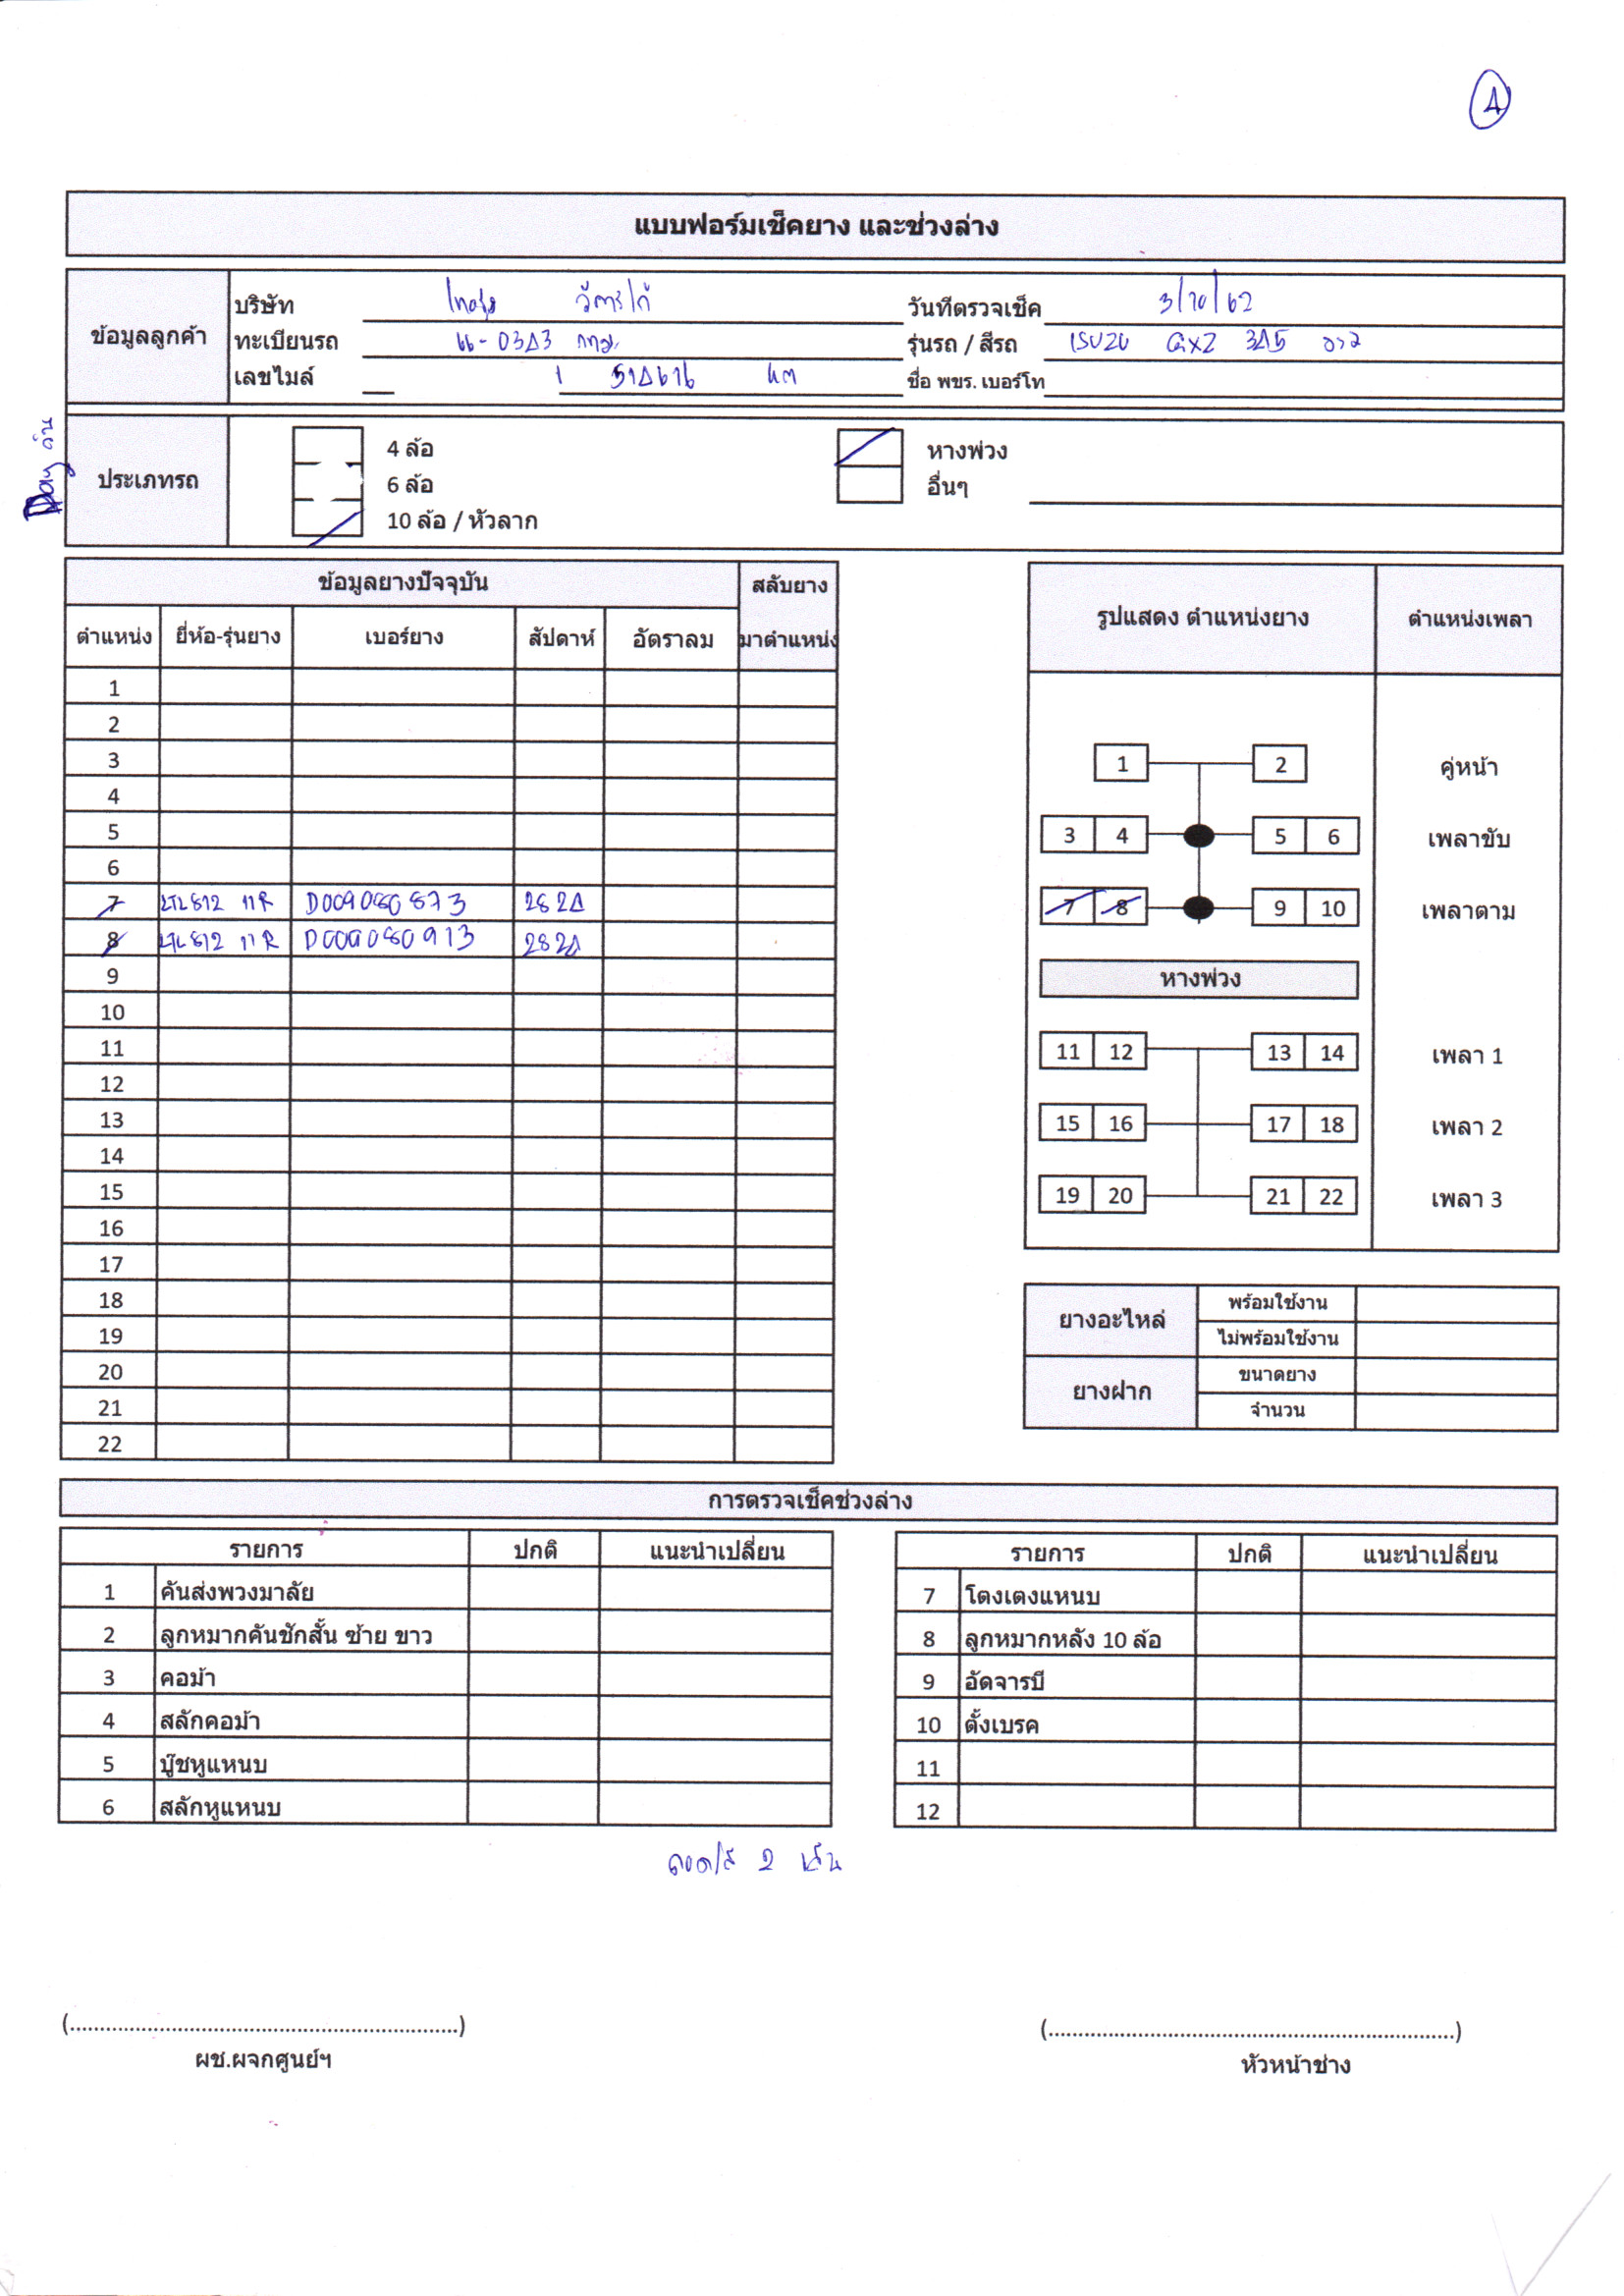 4
แบบฟอร์มเช็คยาง และช่วงล่าง
ข้อมูลลูกค้า
บริษัท
วันที่ตรวจเช็ค 3/10/62
ทะเบียนรถ 66-0343 กทม.
รุ่นรถ / สีรถ ISUZU GXZ 345 ขาว
เลขไมล์ 1 514616 KM
ชื่อ พขร. เบอร์โท
ประเภทรถ
4 ล้อ
6 ล้อ
10 ล้อ / หัวลาก
หางพ่วง
อื่นๆ
ข้อมูลยางปัจจุบัน
สลับยาง
มาตำแหน่ง
ตำแหน่ง ยี่ห้อ-รุ่นยาง เบอร์ยาง สัปดาห์ อัตราลม
1
2
3
4
5
6
7 LTL812 11R D009080873 2824
8 LTL812 11R D009080913 2824
9
10
11
12
13
14
15
16
17
18
19
20
21
22
รูปแสดง ตำแหน่งยาง ตำแหน่งเพลา
1 2 คู่หน้า
3 4 5 6 เพลาขับ
7 8 9 10 เพลาตาม
หางพ่วง
11 12 13 14 เพลา 1
15 16 17 18 เพลา 2
19 20 21 22 เพลา 3
ยางอะไหล่
พร้อมใช้งาน
ไม่พร้อมใช้งาน
ยางฝาก
ขนาดยาง
จำนวน
การตรวจเช็คช่วงล่าง
รายการ ปกติ แนะนำเปลี่ยน
1 คันส่งพวงมาลัย
2 ลูกหมากคันชักสั้น ซ้าย ขาว
3 คอม้า
4 สลักคอม้า
5 บู๊ชหูแหนบ
6 สลักหูแหนบ
รายการ ปกติ แนะนำเปลี่ยน
7 โตงเตงแหนบ
8 ลูกหมากหลัง 10 ล้อ
9 อัดจารบี
10 ตั้งเบรค
11
12
ถอด/ใส่ 2 เส้น
(..................................................................)
ผช.ผจกศูนย์ฯ
(.....................................................................)
หัวหน้าช่าง